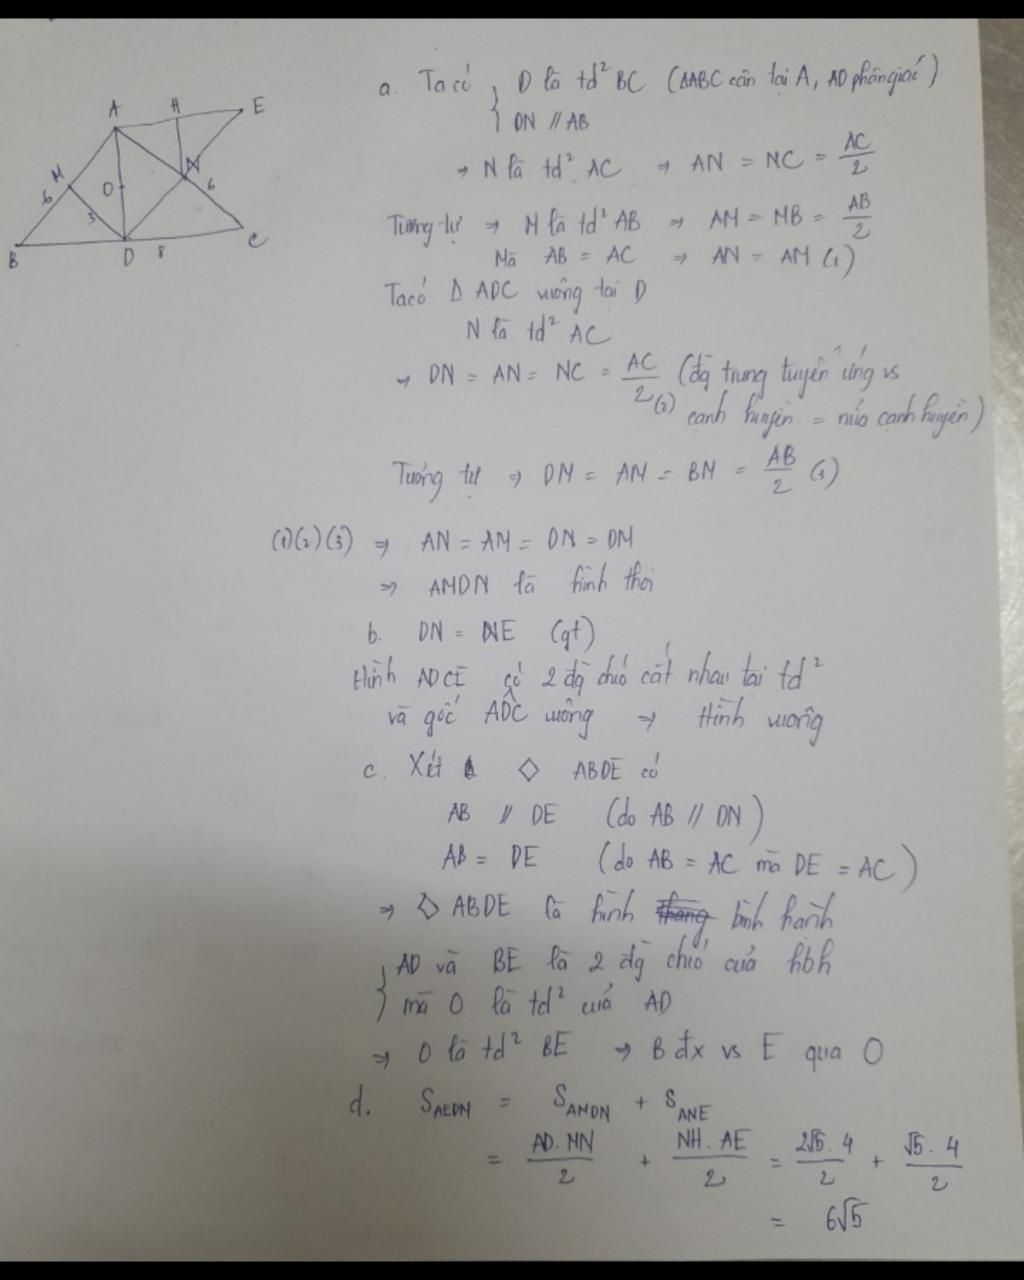 A H E
M N
6 O 6
3
B D 8 C
a. Ta có { D là td² BC (ΔABC cân tại A, AD phân giác)
DN // AB
→ N là td² AC → AN = NC = AC/2
Tương tự → M là td² AB → AM = MB = AB/2
Mà AB = AC → AN = AM (1)
Ta có Δ ADC vuông tại D
N là td² AC
→ DN = AN = NC = AC/2 (2) (đg trung tuyến ứng vs
cạnh huyền = nửa cạnh huyền)
Tương tự → DM = AM = BM = AB/2 (3)
(1)(2)(3) → AN = AM = DN = DM
→ AMDN là hình thoi
b. DN = NE (gt)
Hình ADCE có 2 đg chéo cắt nhau tại td²
và góc ADC vuông → Hình vuông
c. Xét ◇ ABDE có
AB // DE (do AB // DN)
AB = DE (do AB = AC mà DE = AC)
→ ◇ ABDE là hình thang bình hành
{ AD và BE là 2 đg chéo của hbh
mà O là td² của AD
→ O là td² BE → B đx vs E qua O
d. S_AEDM = S_AMDN + S_ANE
= AD. MN/2 + NH. AE/2 = 2√5. 4/2 + √5. 4/2
= 6√5